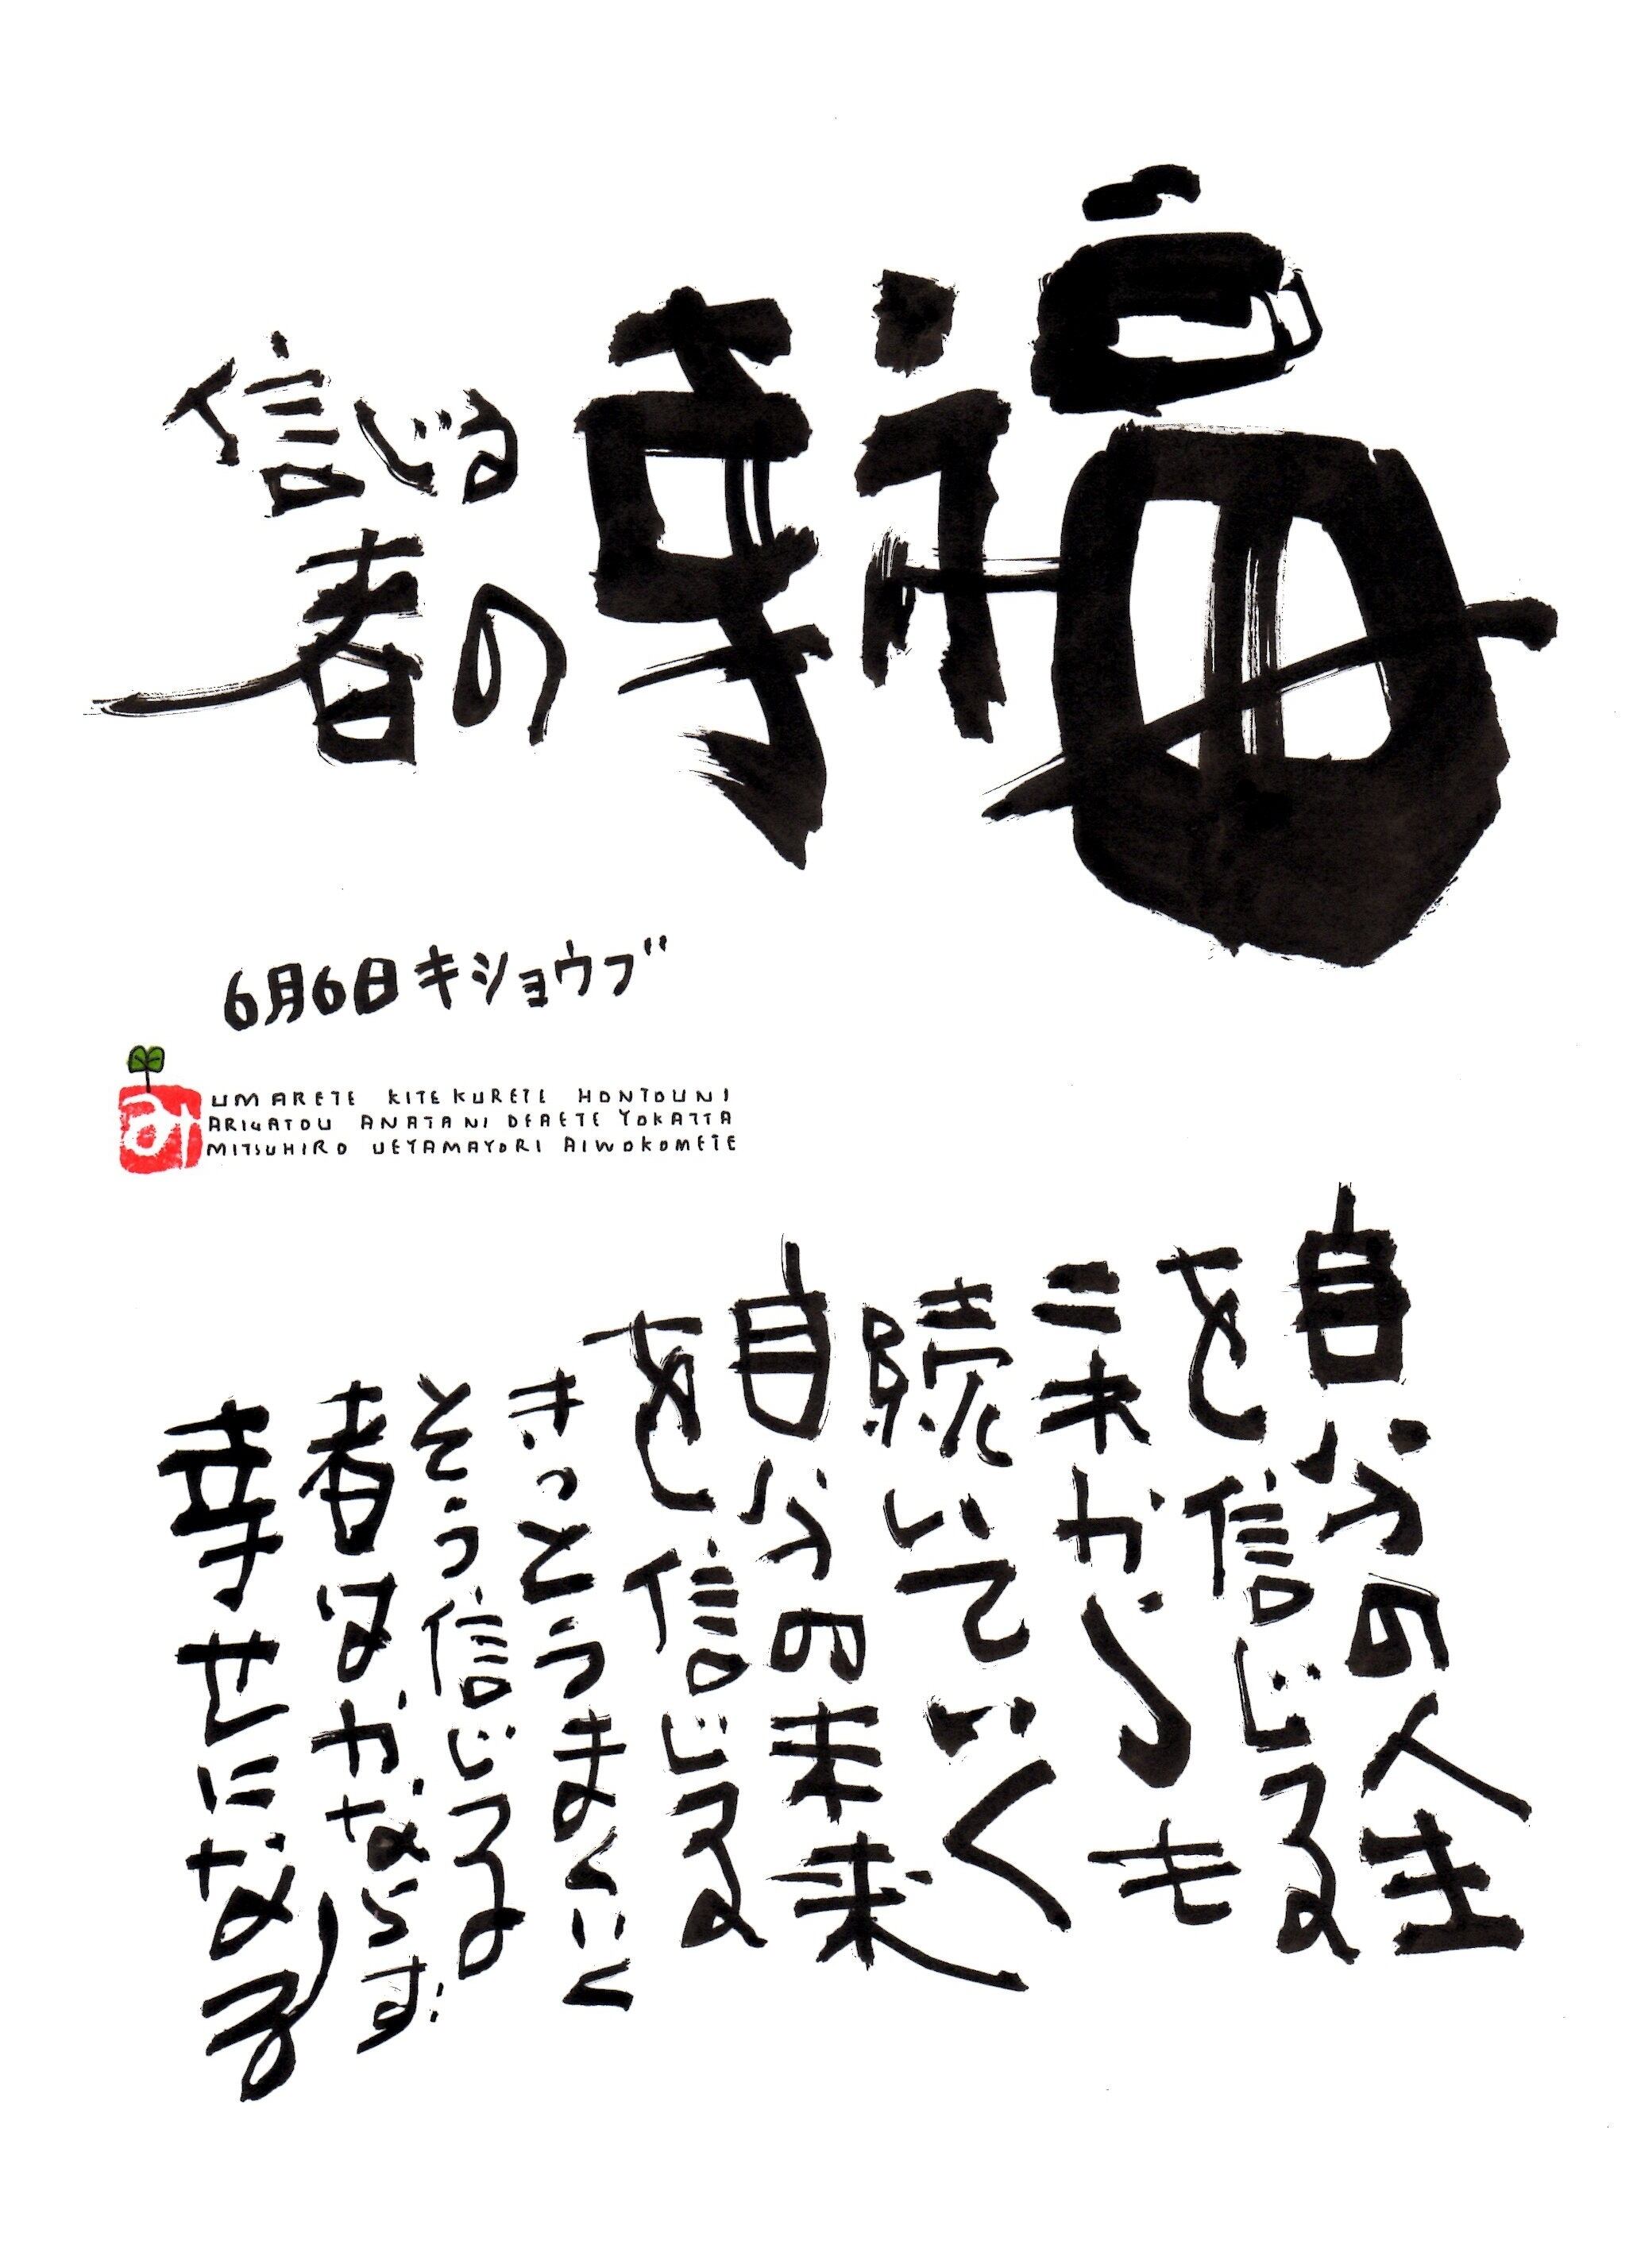 信じる
者の
幸福
6月6日キショウブ
UMARETE KITEKURETE HONTOUNI
ARIGATOU ANATANI DEAETE YOKATTA
MITSUHIRO UEYAMAYORI AIWOKOMETE
自分の人生
を信じる
これからも
続いていく
自分の未来
を信じる
きっとうまくいく
そう信じる
者はかならず
幸せになる